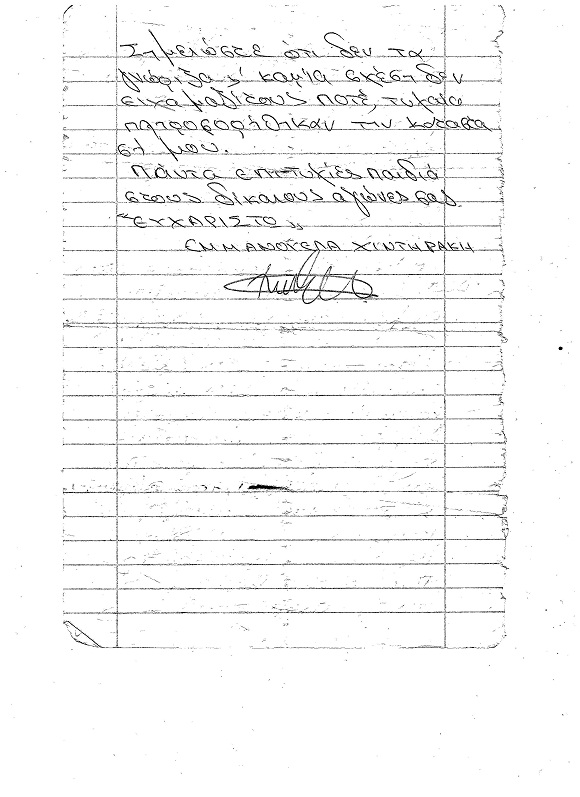 Σημειώσεε ότι δεν τα
γνώριζα κ' καμία σχέση δεν
είχα μαζίτους ποτέ, τυχαία
πληροφορήθηκαν την κατάστα
ση μου.
Πάντα επιτυχίες παιδιά
στους δίκαιους αγώνες σας
"ΕΥΧΑΡΙΣΤΩ„
ΕΜΜΑΝΟΥΕΛΑ ΧΙΝΤΗΡΑΚΗ